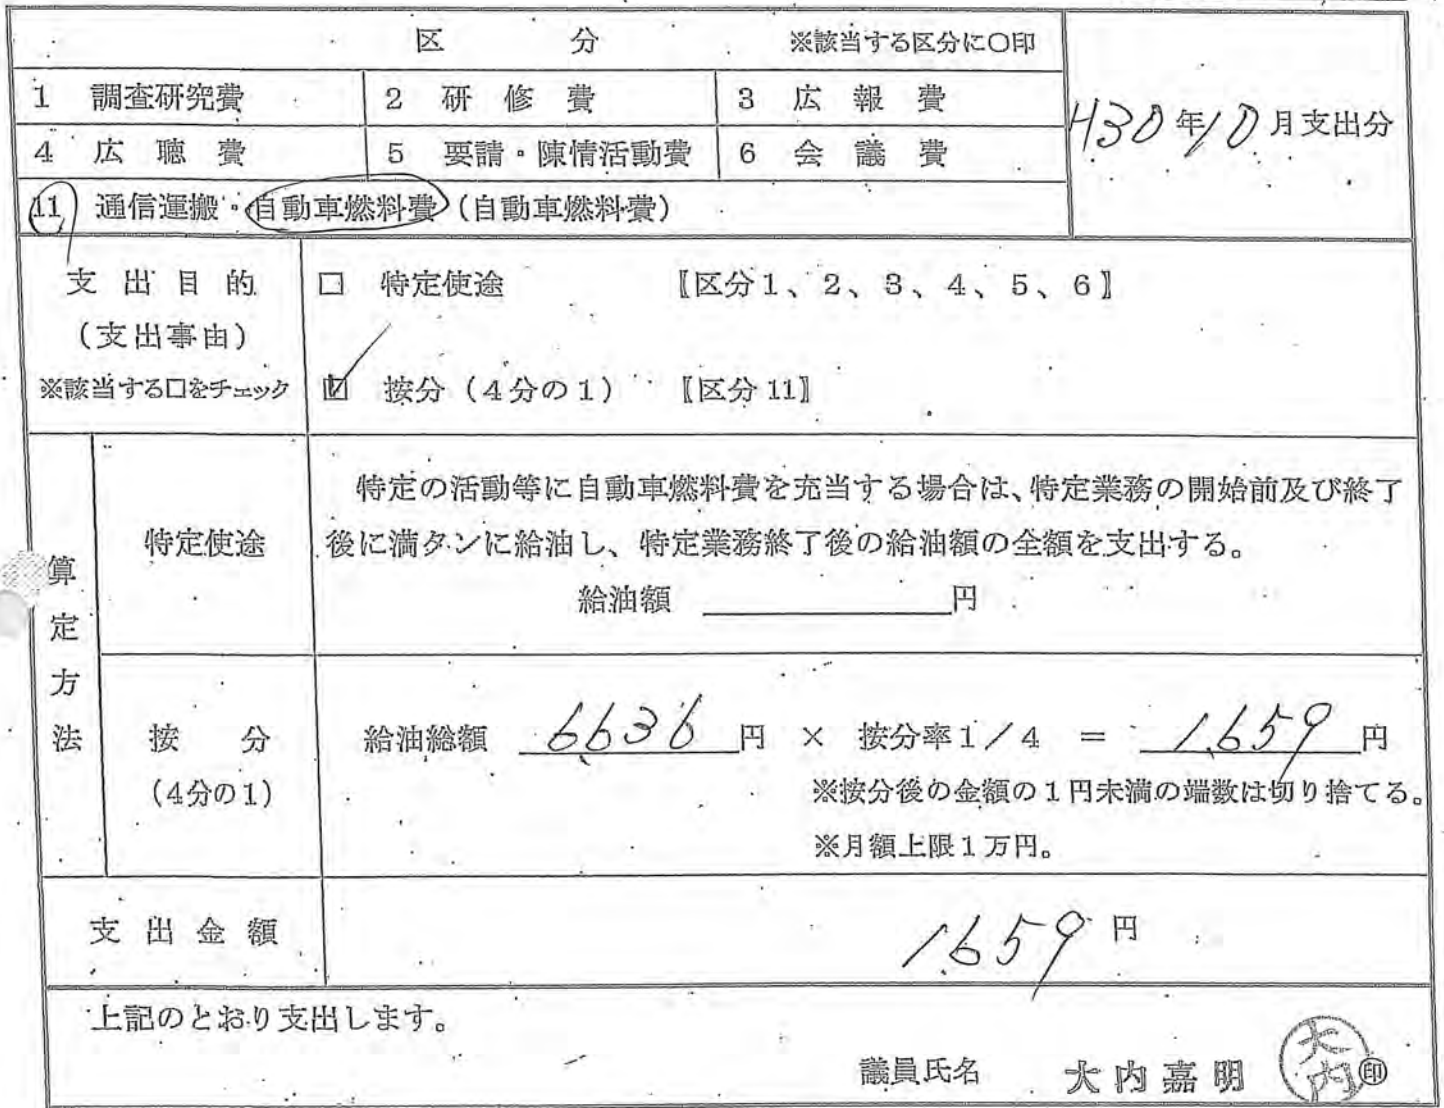 区 分 ※該当する区分に〇印
1 調査研究費 2 研修費 3 広報費
H30年10月支出分
4 広聴費 5 要請・陳情活動費 6 会議費
11 通信運搬・自動車燃料費(自動車燃料費)
支出目的
(支出事由)
※該当する□をチェック
□ 特定使途 〚区分1、2、3、4、5、6〛
☑ 按分(4分の1) 〚区分11〛
算定方法
特定使途
特定の活動等に自動車燃料費を充当する場合は、特定業務の開始前及び終了
後に満タンに給油し、特定業務終了後の給油額の全額を支出する。
給油額 円
按分
(4分の1)
給油総額 6636 円 × 按分率1/4 = 1,659 円
※按分後の金額の1円未満の端数は切り捨てる。
※月額上限1万円。
支出金額 1,659 円
上記のとおり支出します。
議員氏名 大内嘉明 大内 ㊞